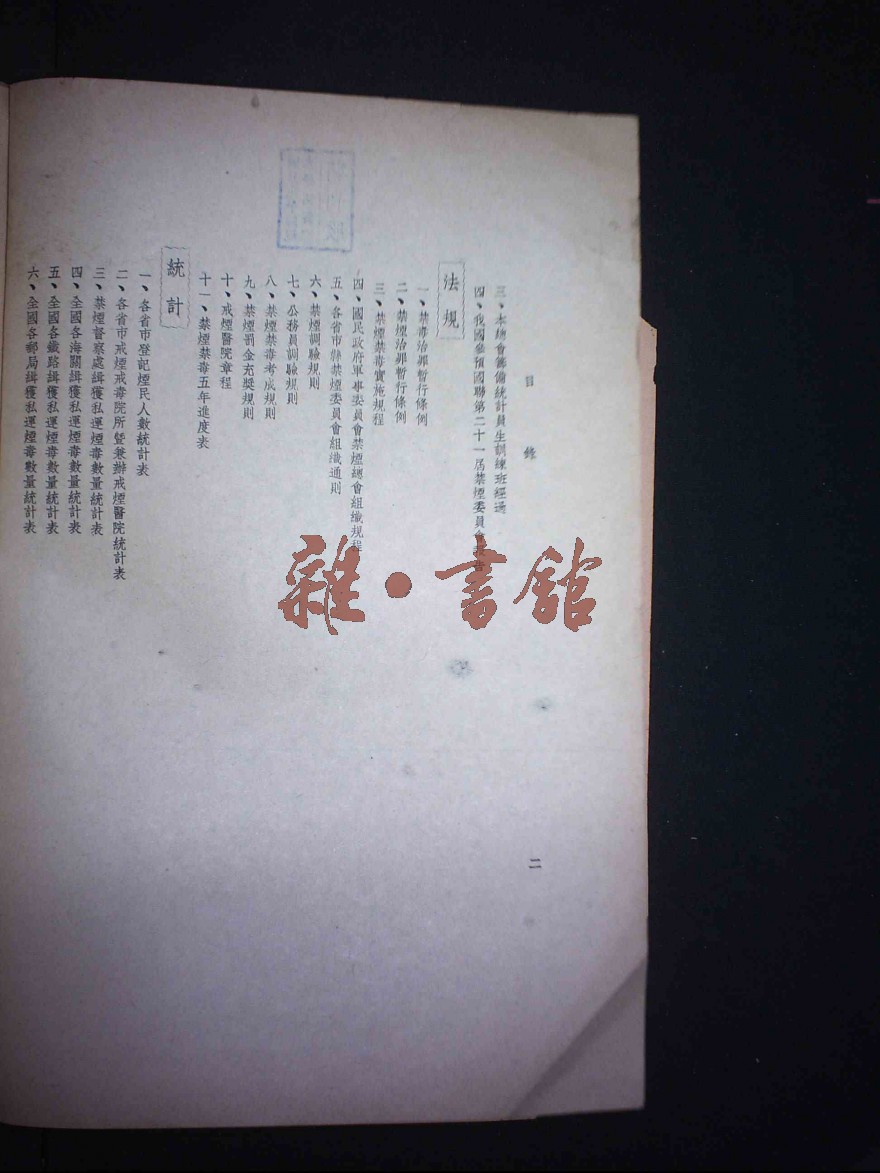 目錄
三、本總會籌備統計員生訓練班經過
四、我國參預國聯第二十一屆禁煙委員會報告
法規
一、禁毒治罪暫行條例
二、禁煙治罪暫行條例
三、禁煙禁毒實施規程
四、國民政府軍事委員會禁煙總會組織規程
五、各省市縣禁煙委員會組織通則
六、禁煙調驗規則
七、公務員調驗規則
八、禁煙禁毒考成規則
九、禁煙罰金充獎規則
十、戒煙醫院章程
十一、禁煙禁毒五年進度表
統計
一、各省市登記煙民人數統計表
二、各省市戒煙戒毒院所暨兼辦戒煙醫院統計表
三、禁煙督察處緝獲私運煙毒數量統計表
四、全國各海關緝獲私運煙毒數量統計表
五、全國各鐵路緝獲私運煙毒數量統計表
六、全國各郵局緝獲私運煙毒數量統計表
二
雜·書館